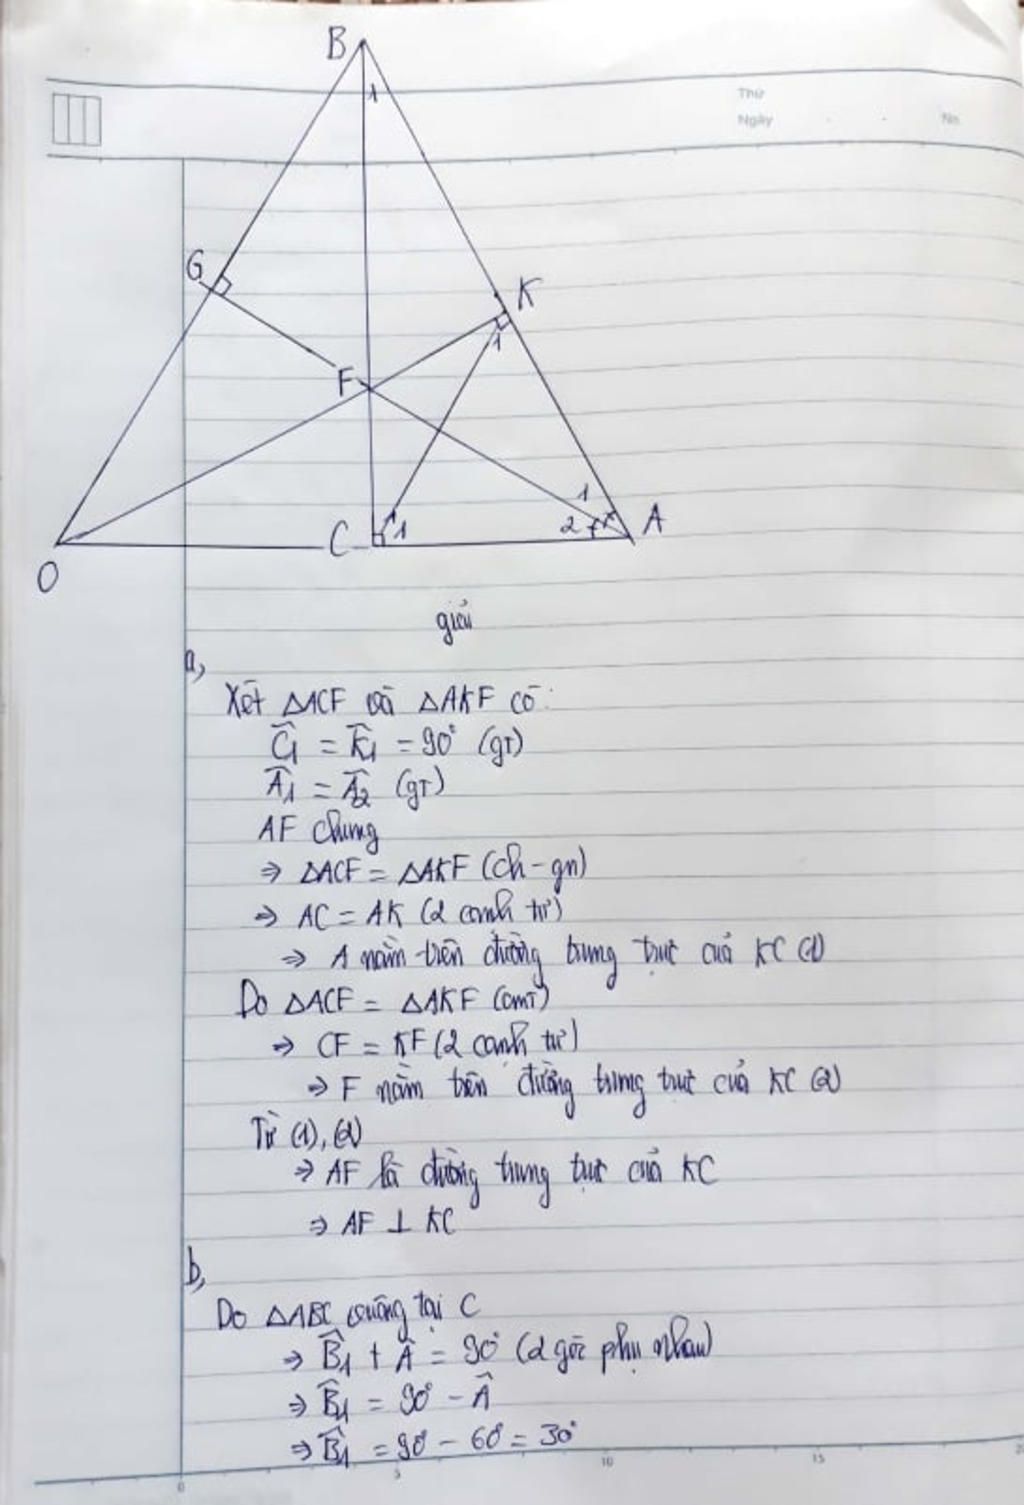 B
1
Thứ
Ngày
No.
G
K
1
F
1
C
1
2
A
O
giải
a,
Xét △ACF và △AKF có:
Ĉ1 = K̂1 = 90° (gt)
Â1 = Â2 (gt)
AF chung
⇒ △ACF = △AKF (ch-gn)
⇒ AC = AK (2 cạnh tứ)
⇒ A nằm trên đường trung trực của KC (1)
Do △ACF = △AKF (cmt)
⇒ CF = KF (2 cạnh tứ)
⇒ F nằm trên đường trung trực của KC (2)
Từ (1), (2)
⇒ AF là đường trung trực của KC
⇒ AF ⊥ KC
b,
Do △ABC vuông tại C
⇒ B̂1 + Â = 90° (2 góc phụ nhau)
⇒ B̂1 = 90° - Â
⇒ B̂1 = 90° - 60° = 30°
0 5 10 15